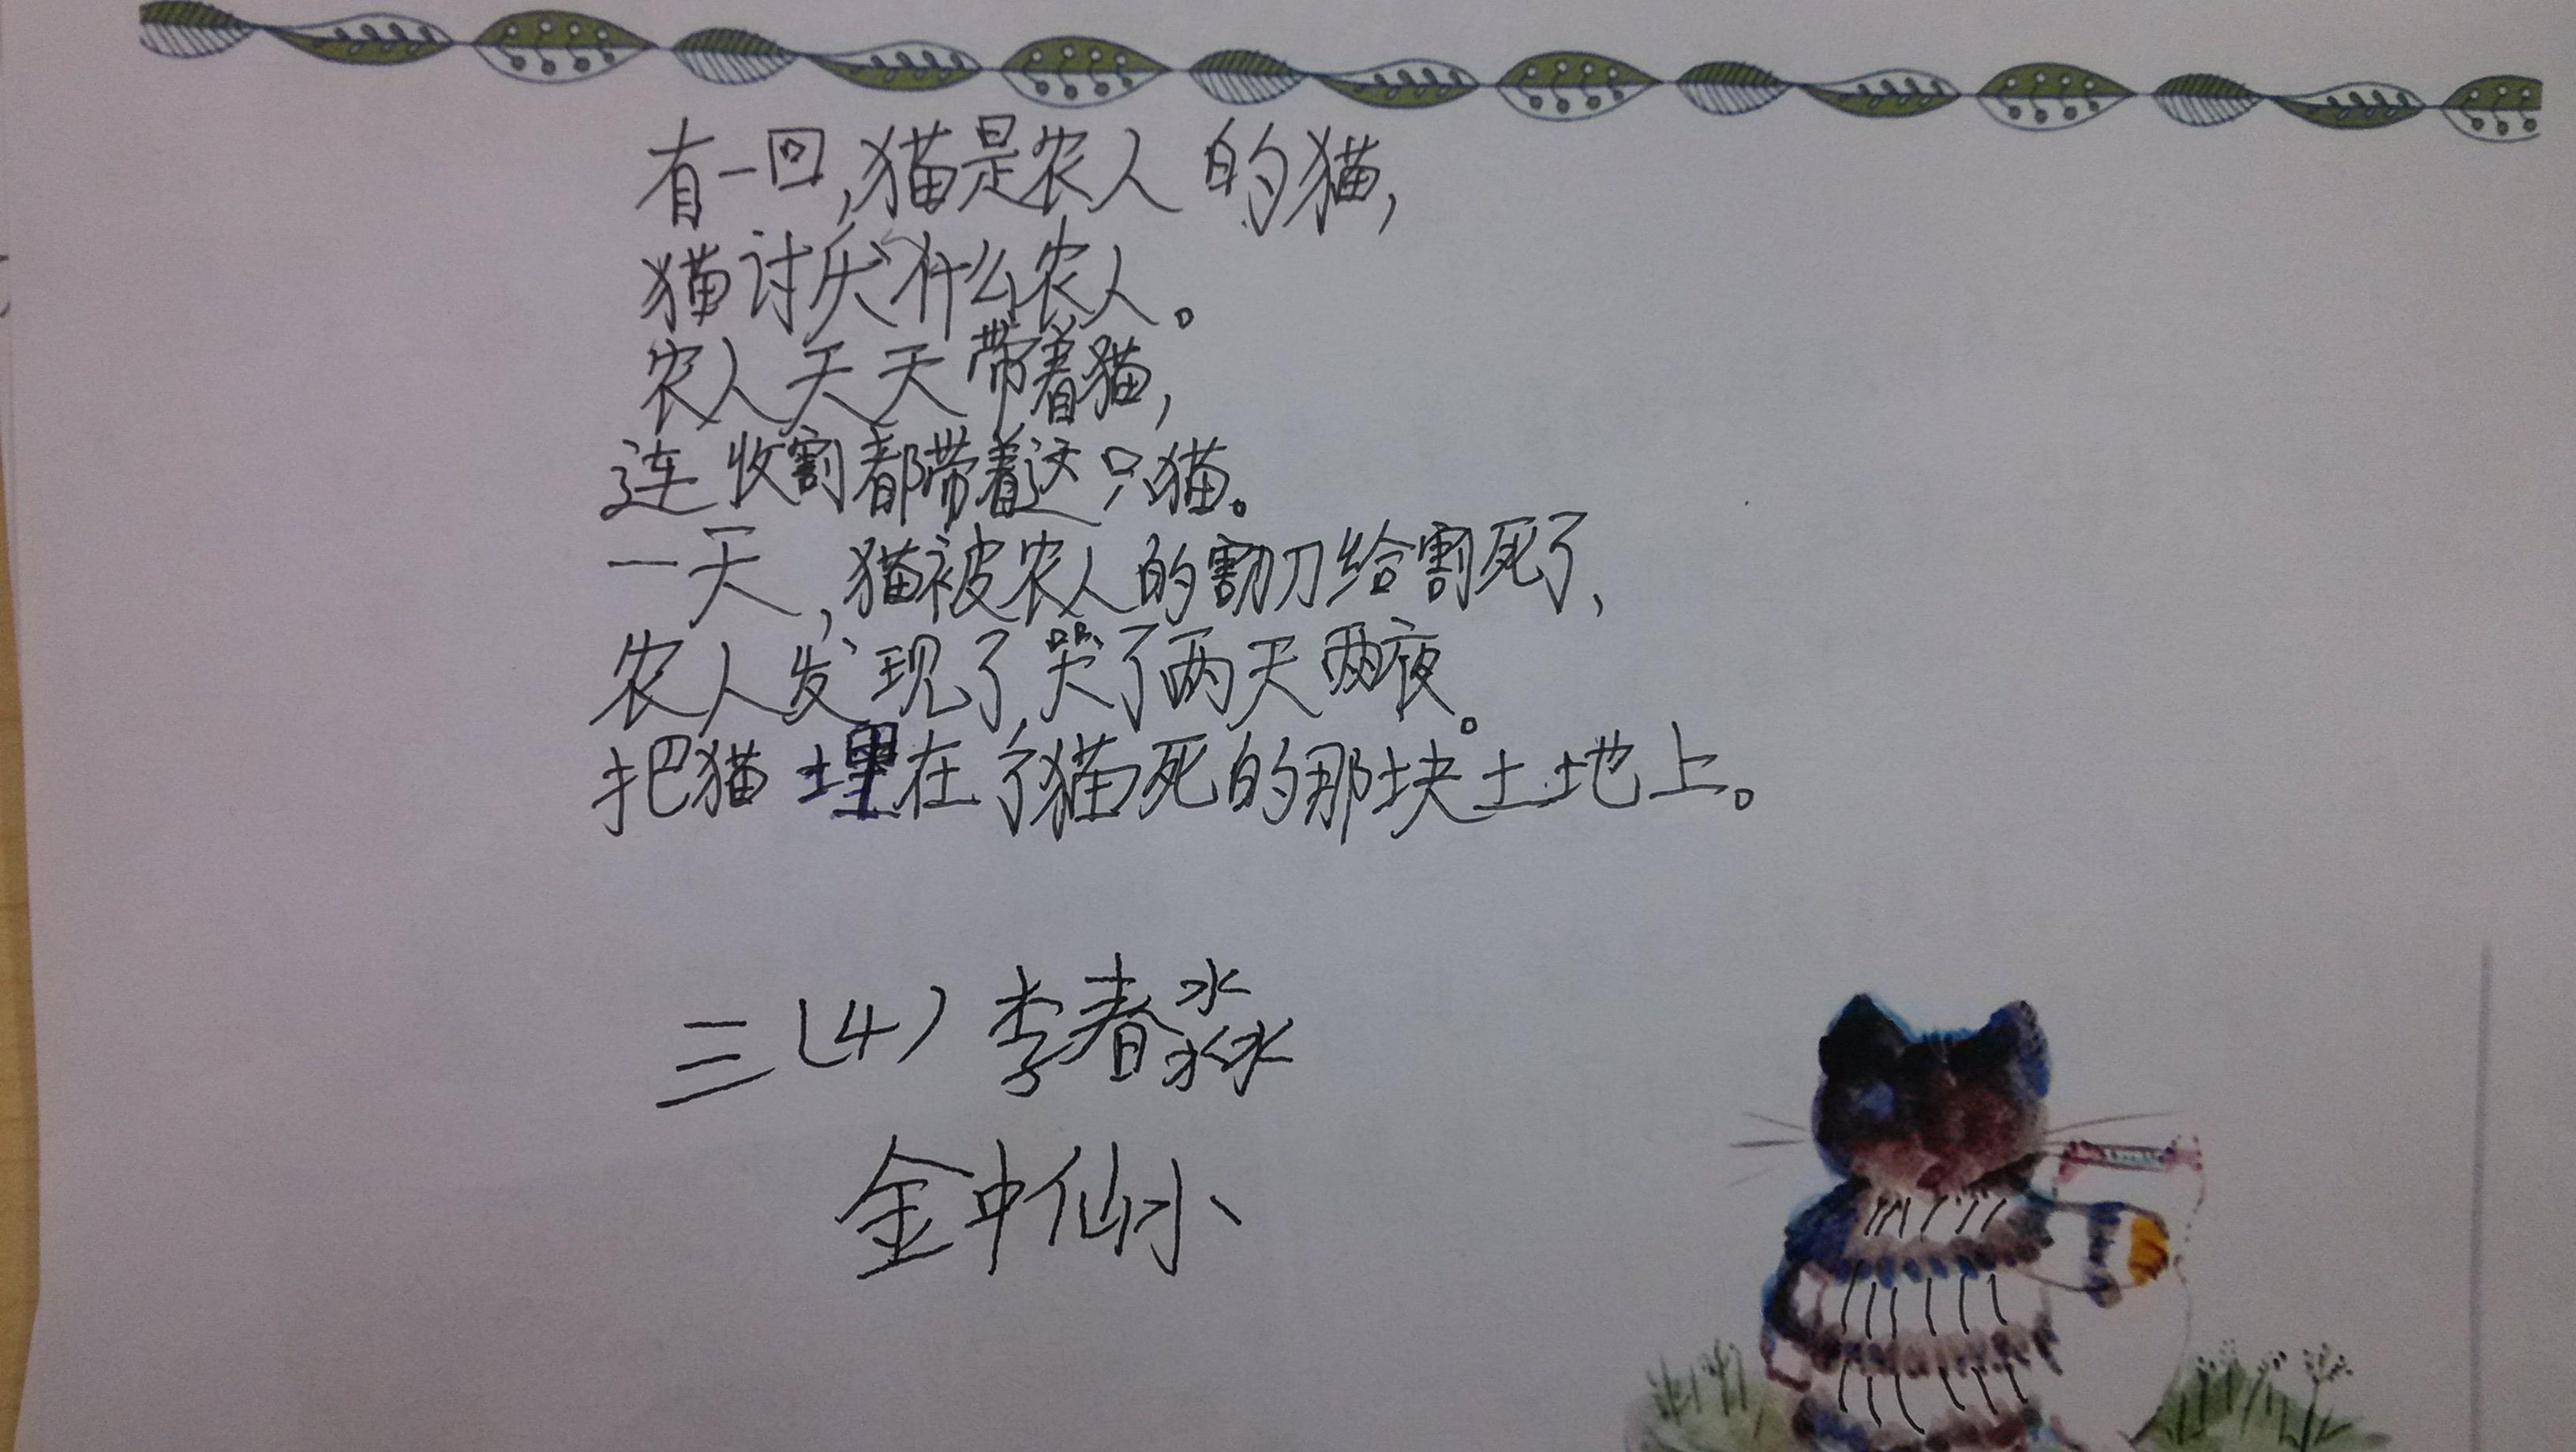 有一回,猫是农人的猫,
猫讨厌什么农人。
农人天天带着猫,
连收割都带着这只猫。
一天,猫被农人的割刀给割死了、
农人发现了,哭了两天两夜。
把猫埋在了猫死的那块土地上。
三(4)李春淼
金中仙小